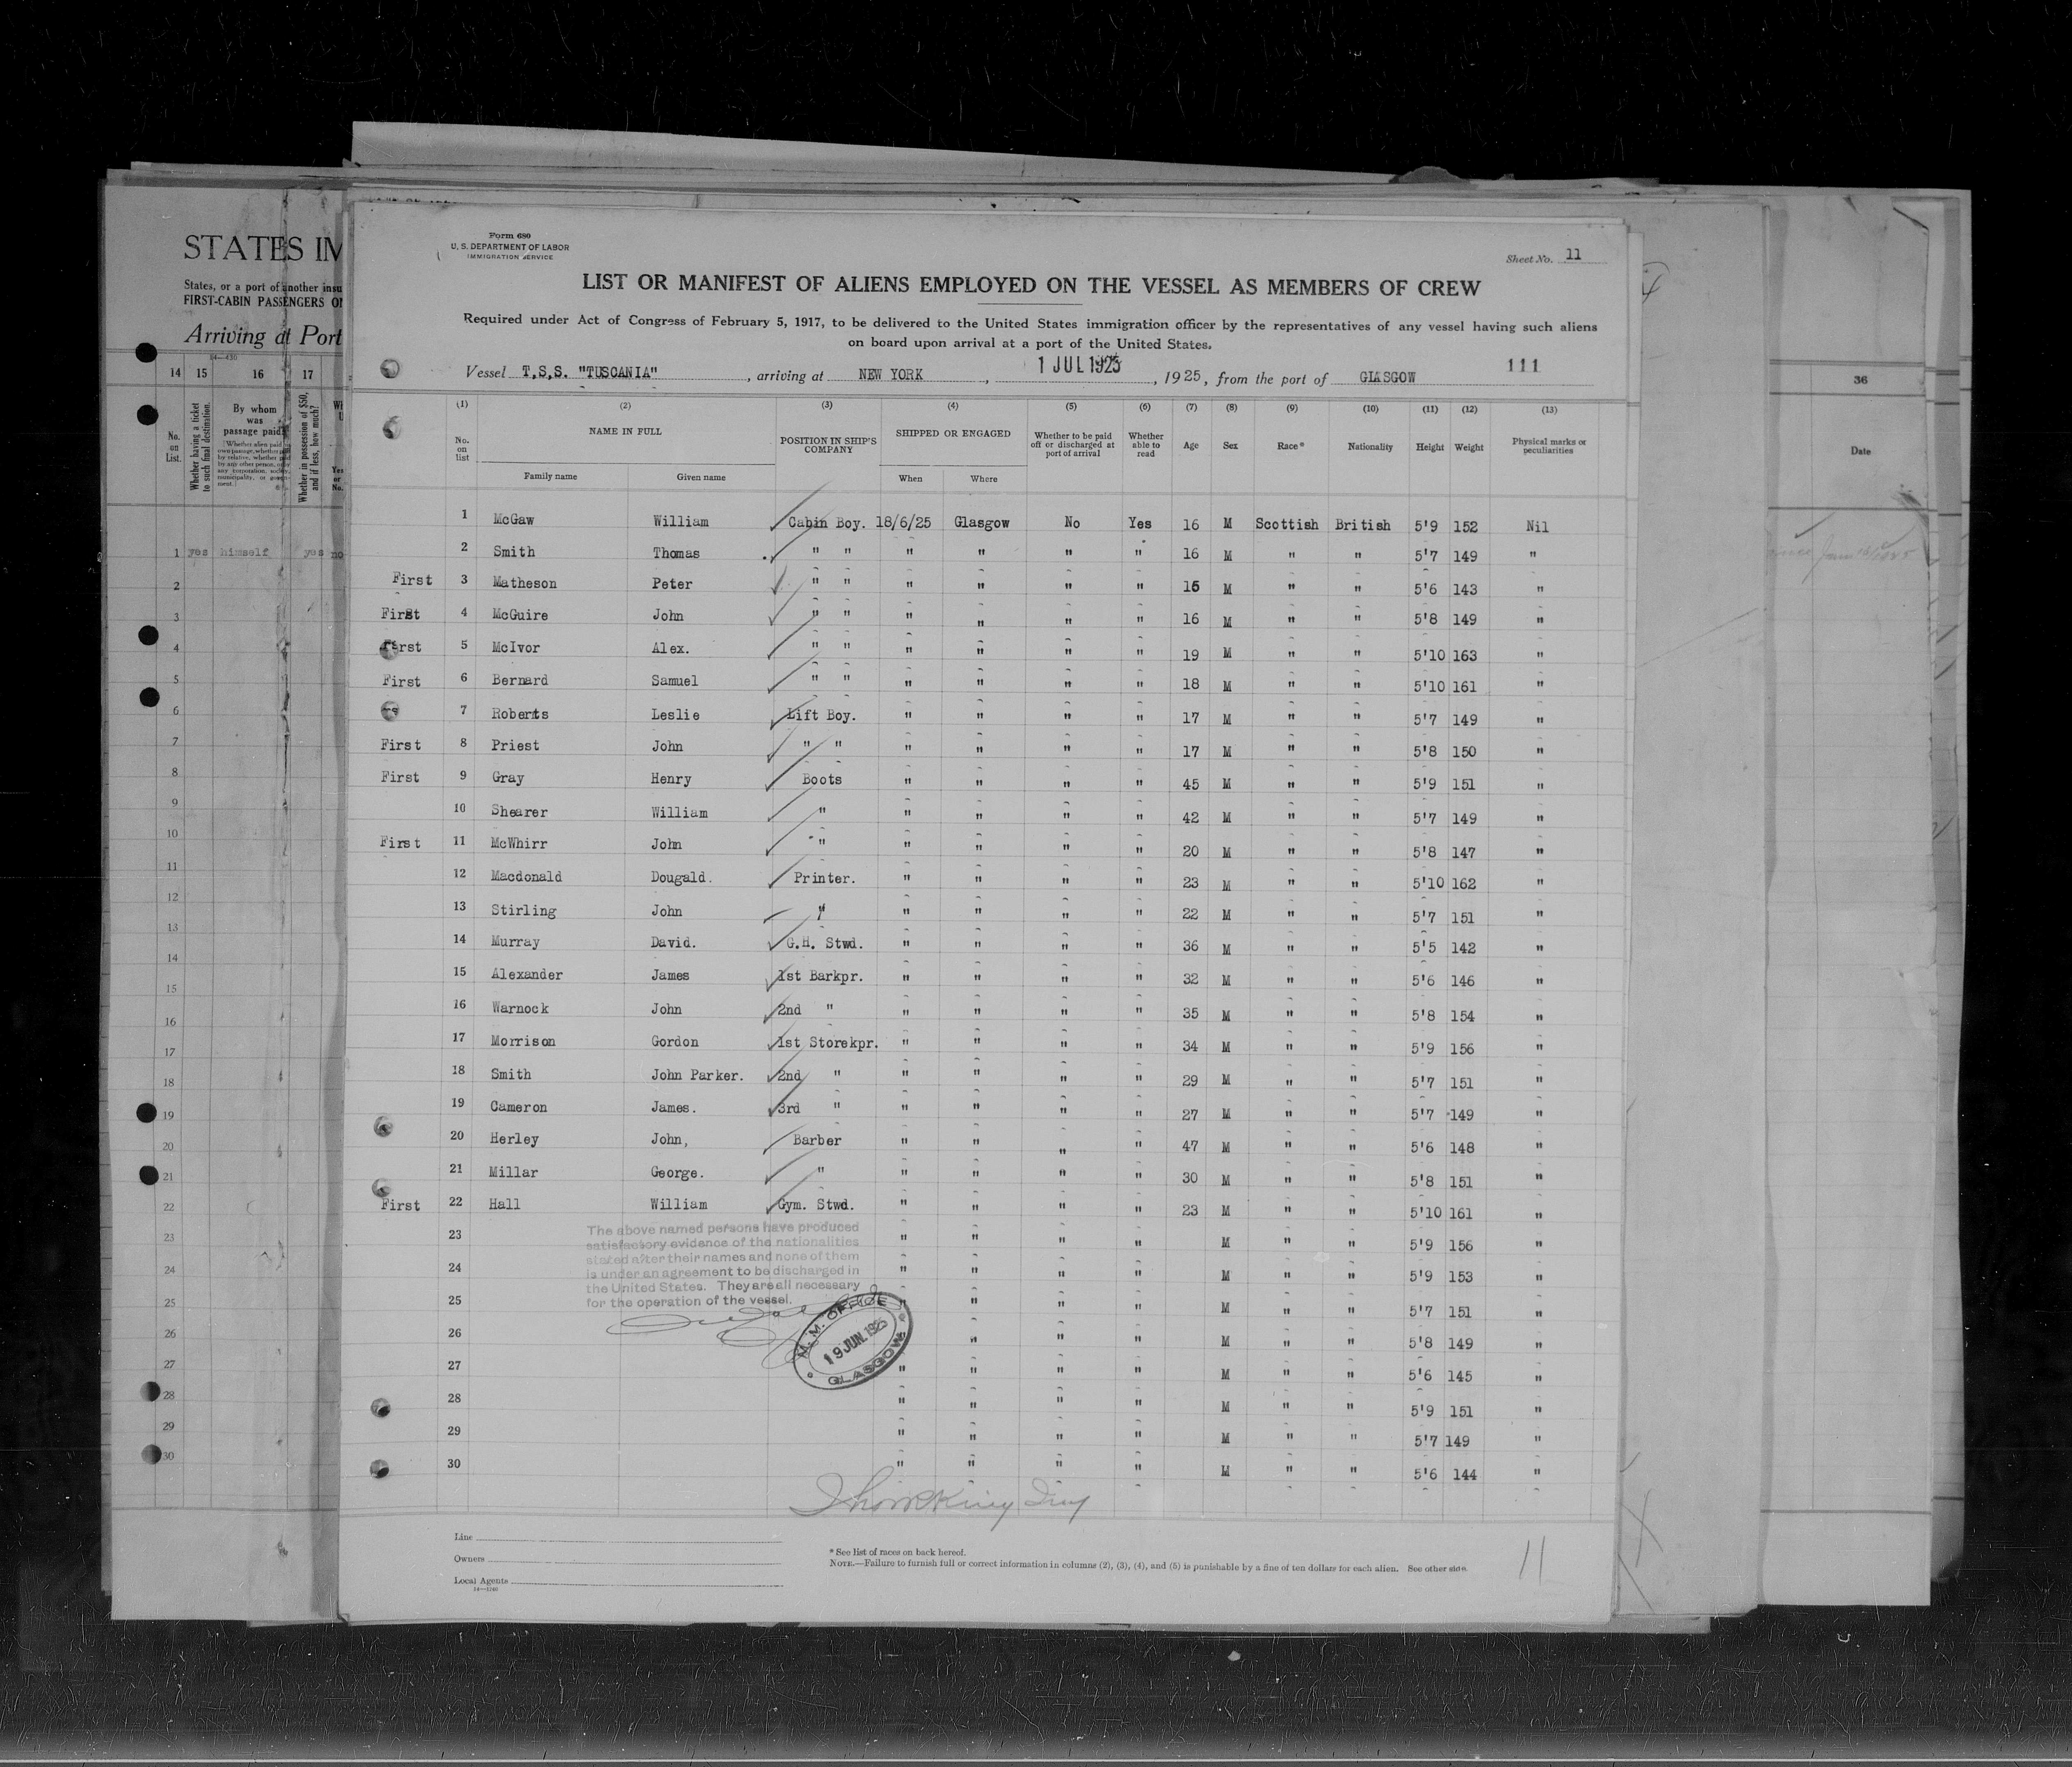 STATES IM
States, or a port of another insu
FIRST-CABIN PASSENGERS O
Arriving at Port
14 15 16 17
No. on List.
Whether having a ticket to such final destination.
By whom was passage paid?
Whether in possession of $50, and if less, how much?
Yes or No.
1 yes himself yes no
2
3
4
5
6
7
8
9
10
11
12
13
14
15
16
17
18
19
20
21
22
23
24
25
26
27
28
29
30
Form 680
U. S. DEPARTMENT OF LABOR
IMMIGRATION SERVICE
Sheet No. 11
LIST OR MANIFEST OF ALIENS EMPLOYED ON THE VESSEL AS MEMBERS OF CREW
Required under Act of Congress of February 5, 1917, to be delivered to the United States immigration officer by the representatives of any vessel having such aliens
on board upon arrival at a port of the United States.
Vessel T.S.S. "TUSCANIA", arriving at NEW YORK, 1 JUL 1925, 1925, from the port of GLASGOW 111
(1) (2) (3) (4) (5) (6) (7) (8) (9) (10) (11) (12) (13)
No. on list
NAME IN FULL
Family name Given name
POSITION IN SHIP'S COMPANY
SHIPPED OR ENGAGED
When Where
Whether to be paid off or discharged at port of arrival
Whether able to read
Age Sex Race* Nationality Height Weight
Physical marks or peculiarities
1 McGaw William Cabin Boy. 18/6/25 Glasgow No Yes 16 M Scottish British 5'9 152 Nil
2 Smith Thomas " " " " " " 16 M " " 5'7 149 "
First 3 Matheson Peter " " " " " " 16 M " " 5'6 143 "
First 4 McGuire John " " " " " " 16 M " " 5'8 149 "
First 5 McIvor Alex. " " " " " " 19 M " " 5'10 163 "
First 6 Bernard Samuel " " " " " " 18 M " " 5'10 161 "
7 Roberts Leslie Lift Boy. " " " " 17 M " " 5'7 149 "
First 8 Priest John " " " " " " 17 M " " 5'8 150 "
First 9 Gray Henry Boots " " " " 45 M " " 5'9 151 "
10 Shearer William " " " " " 42 M " " 5'7 149 "
First 11 McWhirr John " " " " " 20 M " " 5'8 147 "
12 Macdonald Dougald. Printer. " " " " 23 M " " 5'10 162 "
13 Stirling John " " " " " 22 M " " 5'7 151 "
14 Murray David. G.H. Stwd. " " " " 36 M " " 5'5 142 "
15 Alexander James 1st Barkpr. " " " " 32 M " " 5'6 146 "
16 Warnock John 2nd " " " " " 35 M " " 5'8 154 "
17 Morrison Gordon 1st Storekpr. " " " " 34 M " " 5'9 156 "
18 Smith John Parker. 2nd " " " " " 29 M " " 5'7 151 "
19 Cameron James. 3rd " " " " " 27 M " " 5'7 149 "
20 Herley John, Barber " " " " 47 M " " 5'6 148 "
21 Millar George. " " " " " 30 M " " 5'8 151 "
First 22 Hall William Gym. Stwd. " " " " 23 M " " 5'10 161 "
23 " " " " M " " 5'9 156 "
24 " " " " M " " 5'9 153 "
25 " " " " M " " 5'7 151 "
26 " " " M " " 5'8 149 "
27 " " " " M " " 5'6 145 "
28 " " " " M " " 5'9 151 "
29 " " " " M " " 5'7 149 "
30 " " " " M " " 5'6 144 "
The above named persons have produced
satisfactory evidence of the nationalities
stated after their names and none of them
is under an agreement to be discharged in
the United States. They are all necessary
for the operation of the vessel.
M.M. OFFICE
19 JUN. 1925
GLASGOW
Line
Owners
Local Agents
14—1240
* See list of races on back hereof.
NOTE.—Failure to furnish full or correct information in columns (2), (3), (4), and (5) is punishable by a fine of ten dollars for each alien. See other side.
11
36
Date